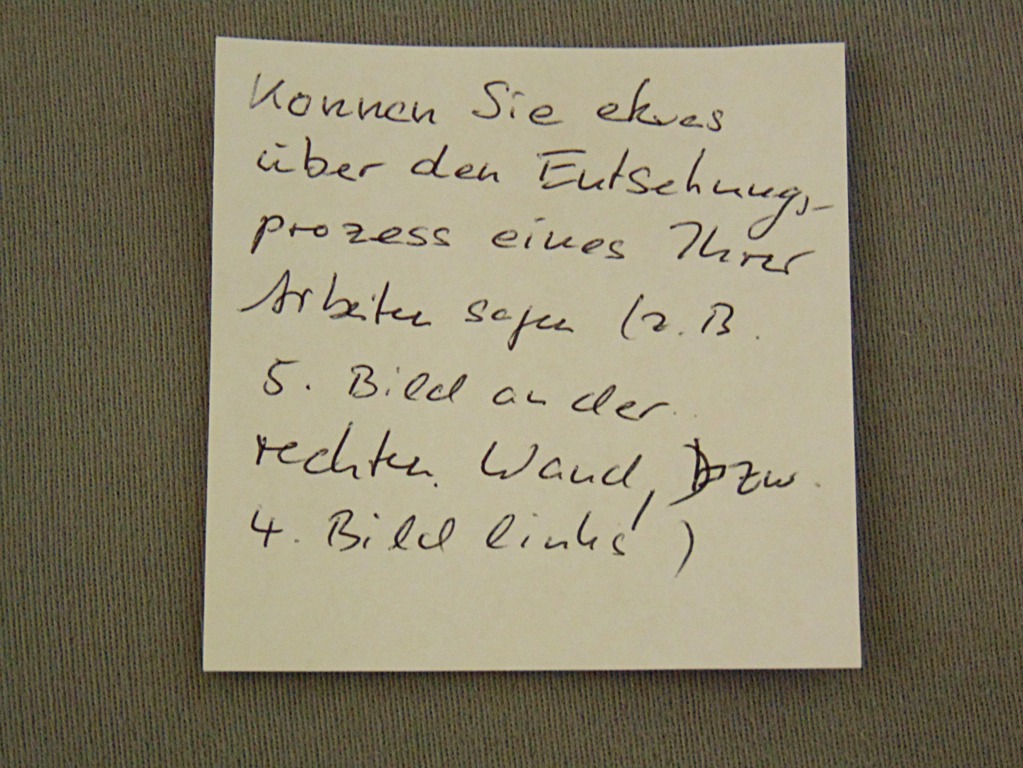 Können Sie etwas
über den Entstehungs-
prozess eines Ihrer
Arbeiten sagen (z.B.
5. Bild an der
rechten Wand, bzw.
4. Bild links)